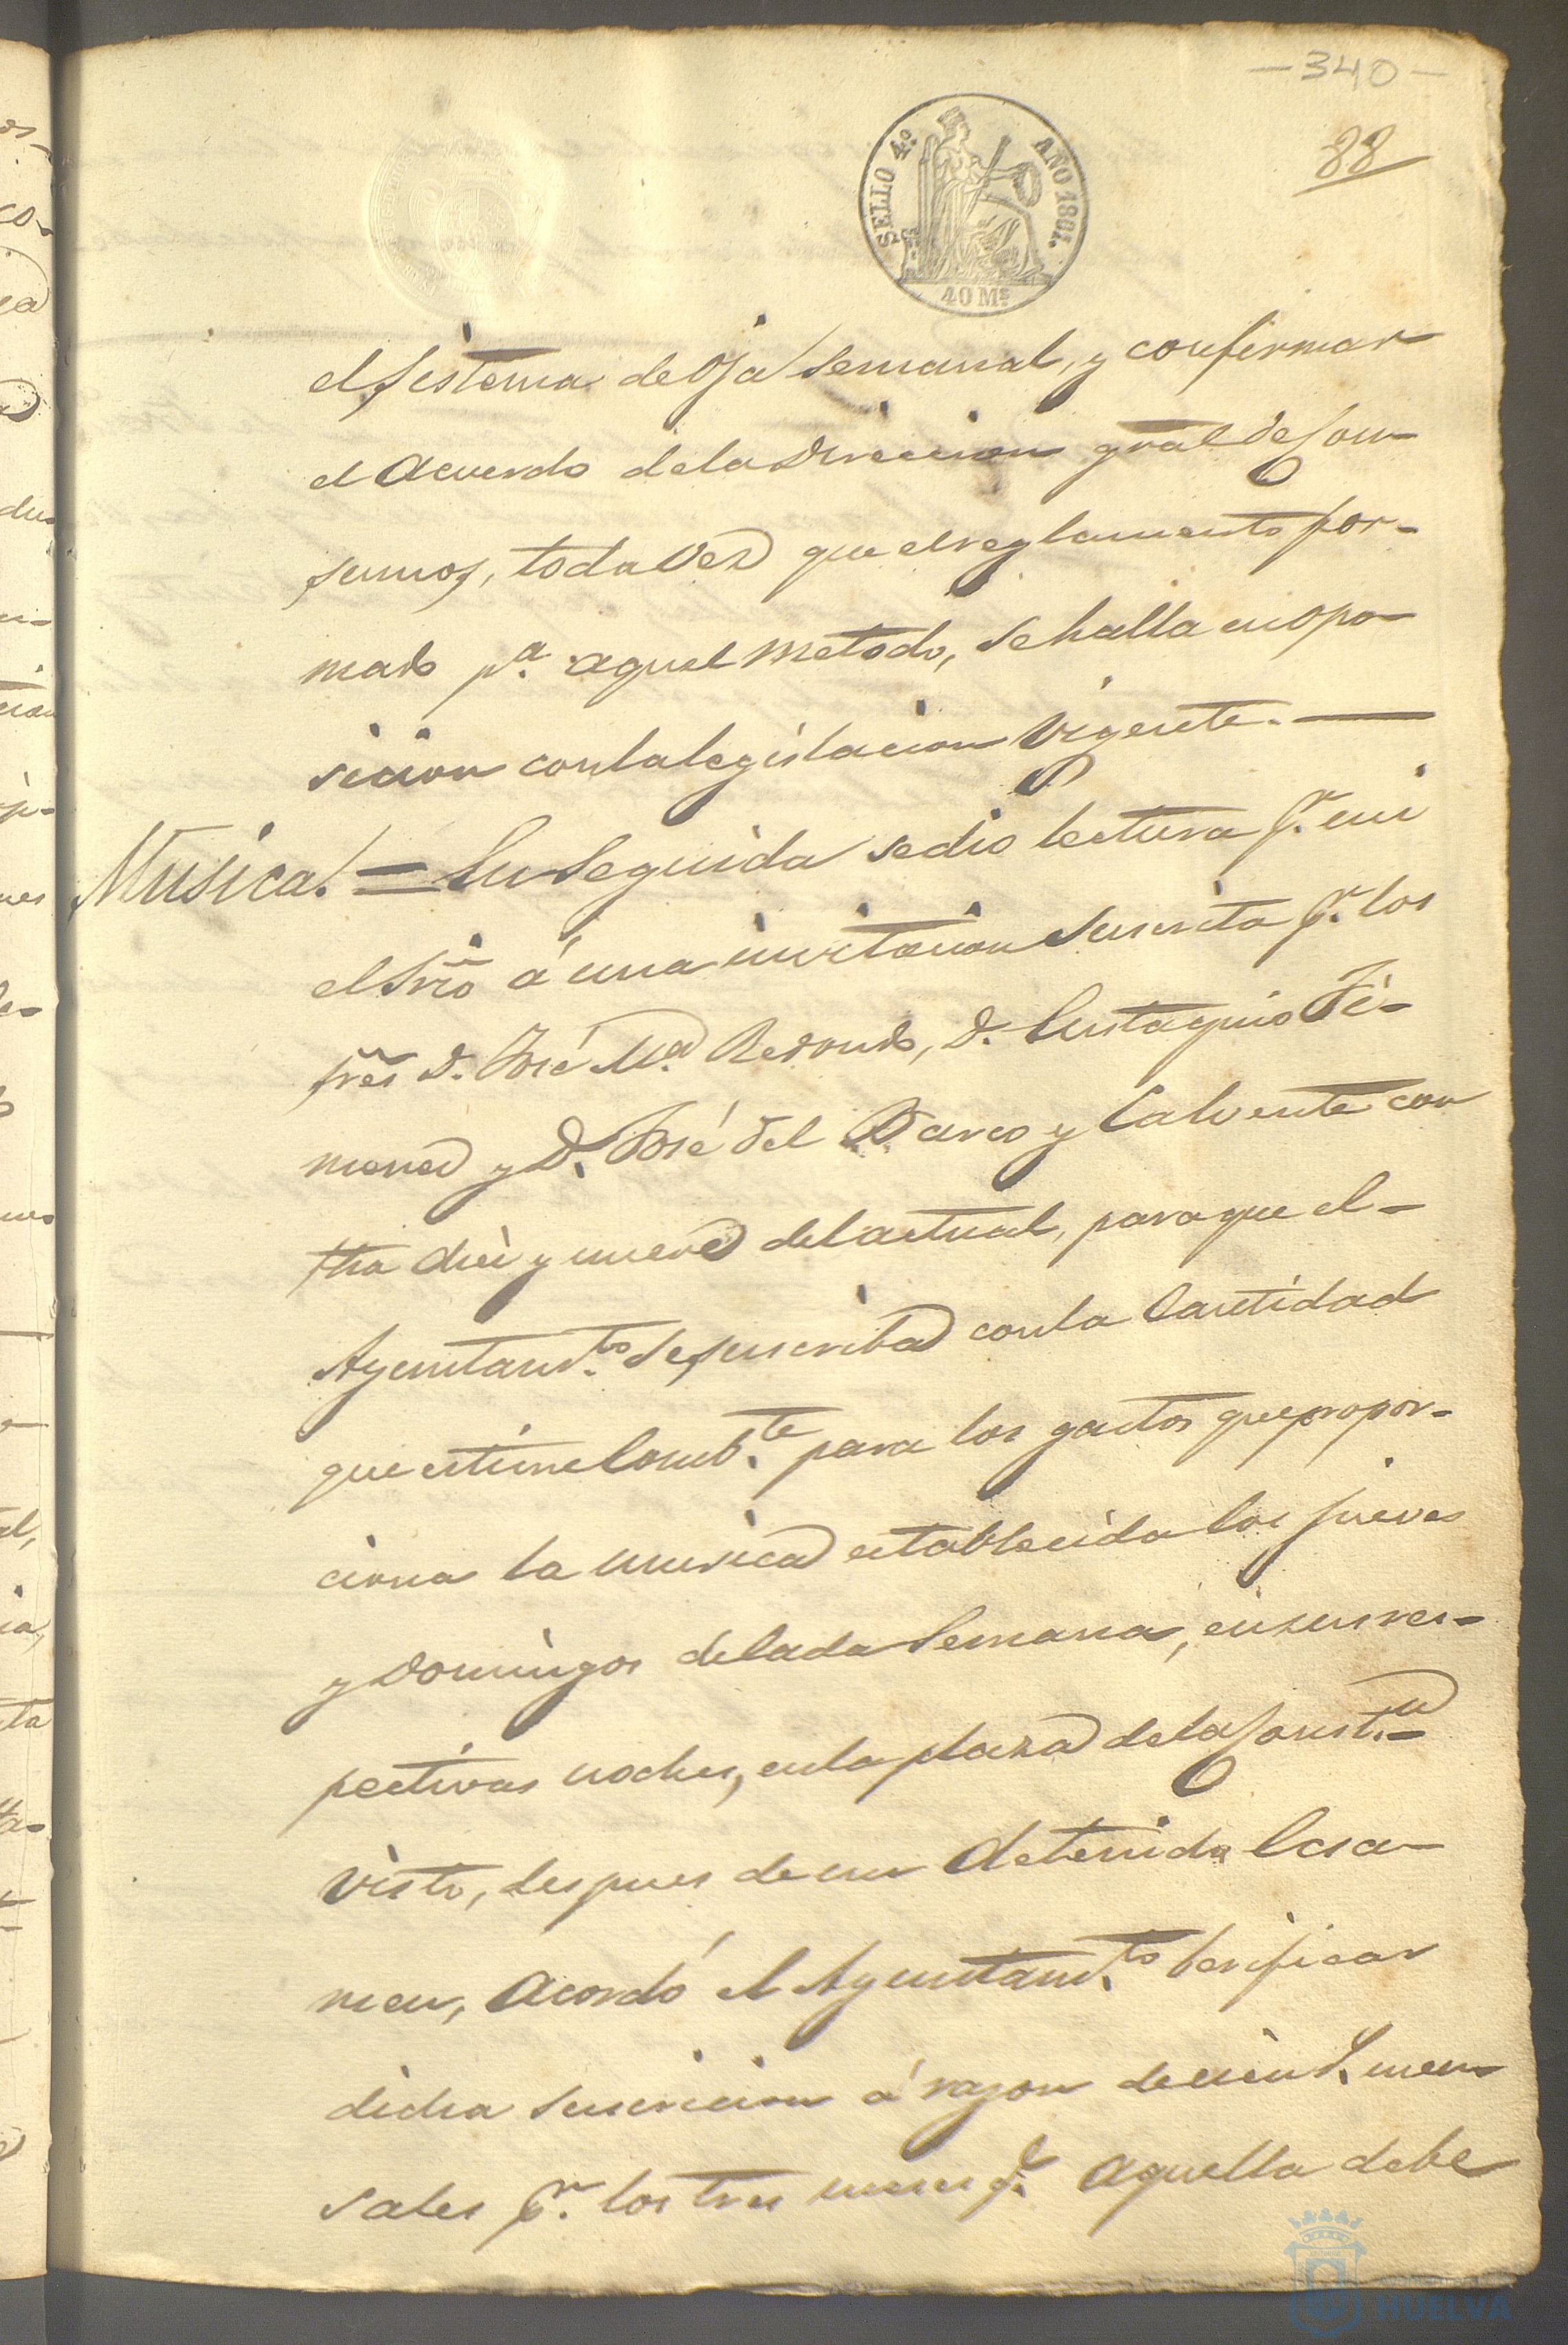 — 340 —
88
SELLO 4º AÑO 1861.
40 Mˢ
el sistema de oja semanal, y confirmar
el acuerdo de la Direccion gral de Con-
sumos, toda vez que el reglamento for-
mado pª. aquel metodo, se halla en opo-
sicion con la legislacion vigente. —
Musica. = En seguida se dio lectura pʳ. mi
el Srio á una invitacion suscrita pʳ. los
sres D. José Mª Redondo, D. Eustaquio Jì-
menez y D. José del Barco y Calvente con
fha diez y nueve del actual, para que el-
Ayuntamᵗᵒ. se suscriba con la Cantidad
que estime Combᵗᵉ. para los gastos que propor-
ciona la musica establecida los jueves
y Domingos de Cada Semana, en sus res-
pectivas noches, en la plaza de la Constⁿ.
Visto, despues de un detenido Esa-
men, acordó el Ayuntamᵗᵒ. berificar
dicha suscricion á razon de cien rˢ. men-
sales pʳ. los tres meses qᵉ. aquella debe
HUELVA